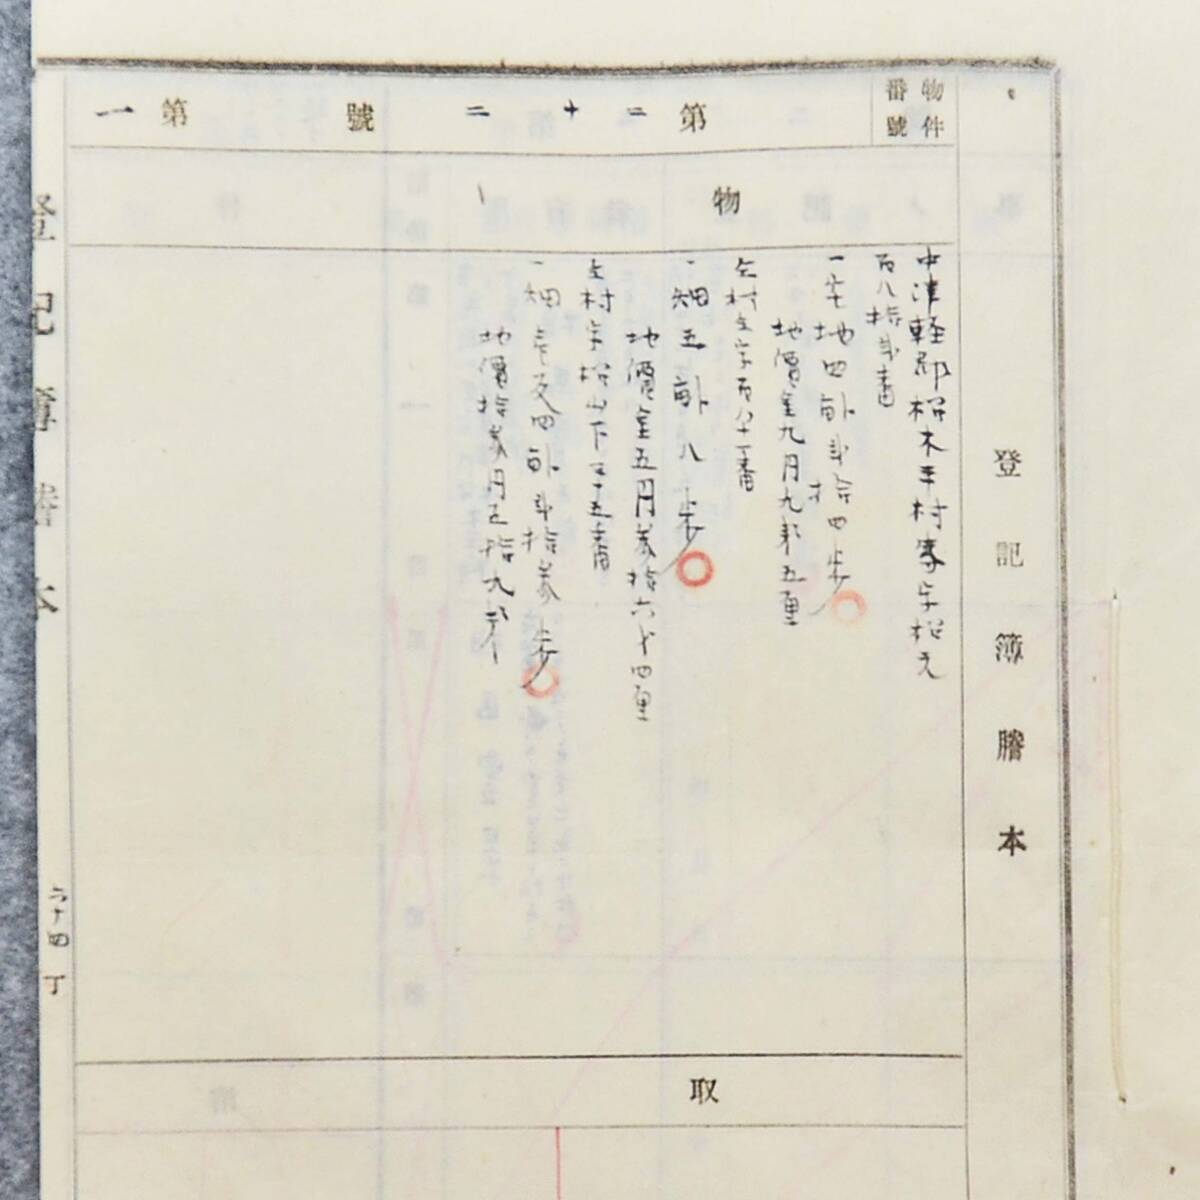 登記簿謄本
物件番號
第二十二號
第一
物
中津軽郡桜木平村字桜元
百八拾弐番
一宅地四畝弐拾四歩
地價金九円九銭五厘
仝村仝字百八十一番
一畑五畝八歩
地價金五円参拾六銭四厘
仝村字桜山下三十五番
一畑壱反四畝弐拾参歩
地價拾参円五拾九銭
取
登記簿謄本
二十四丁